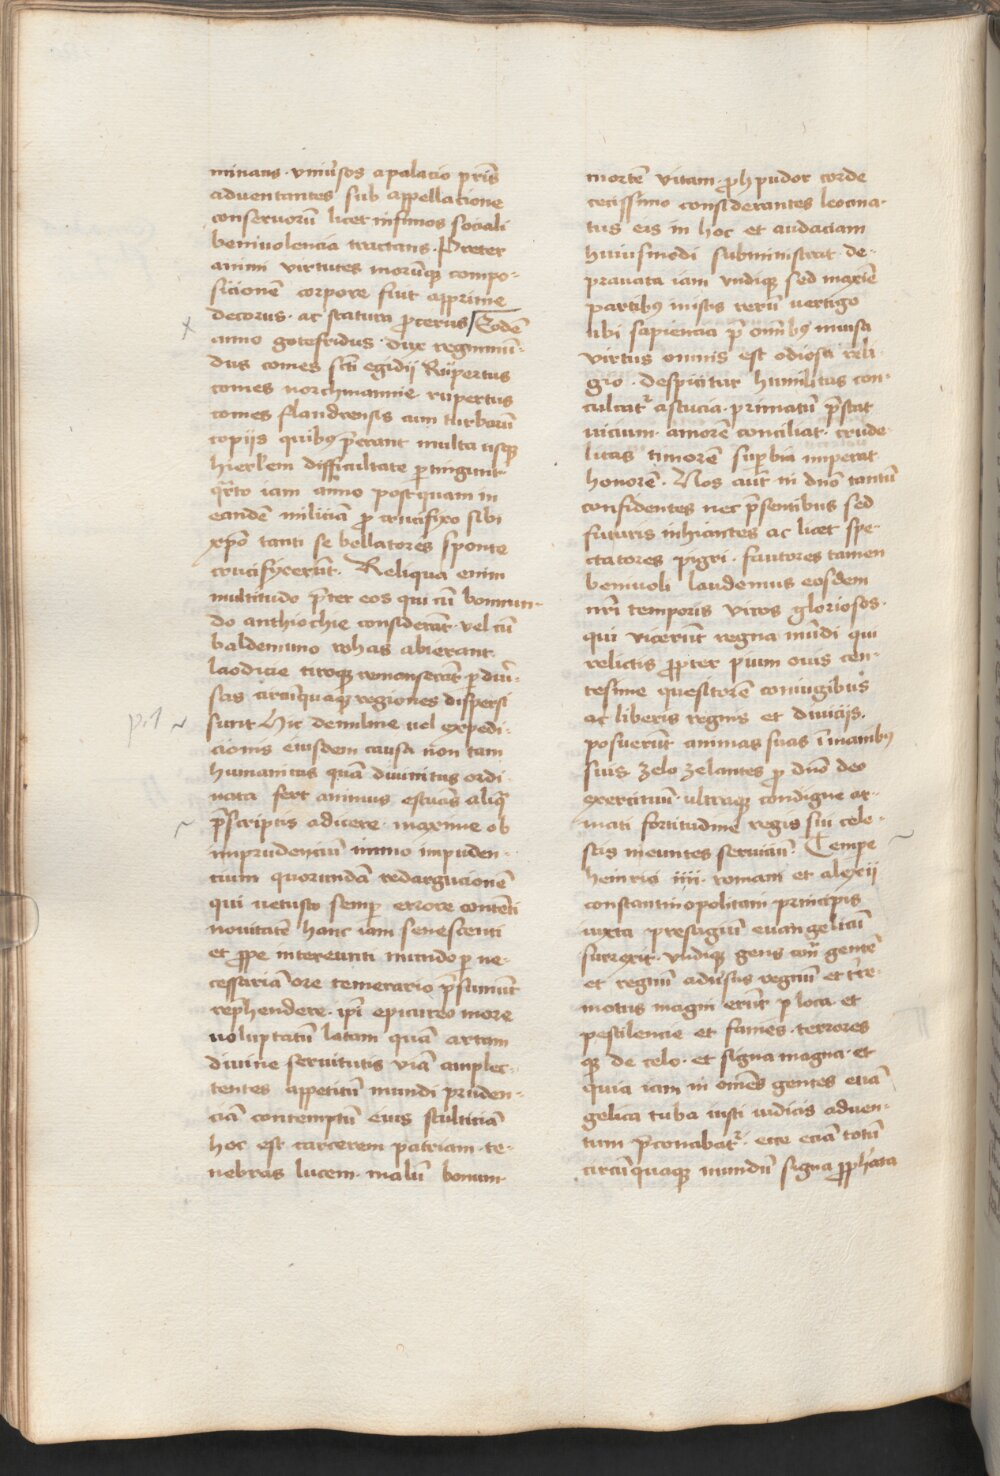 minans · vniũsos a palacio pr̃is
aduentantes sub appellacione
conseruorũ licet infimos sociali
beniuolencia tractans · Preter
animi virtutes morũqꝫ compo-
sicionẽ corpore fuit apprime
decorus · ac statura ꝓcerus / Eodẽ
anno gotefridus · dux regimun-
dus comes scti egidij Rũpertus
comes norchmannie rupertus
comes flandrensis cum turbarũ
copijs quibꝰ p̃erant multa usqꝫ
hierlem difficultate ꝑtingunt
qr̃to iam anno postquam in
eandẽ miliciã ꝓ crucifixo sibi
xp̃o tanti se bellatores sponte
crucifixerũt · Reliqua enim
multitudo p̃ter eos qui cũ bonmun-
do anthiochie considerãt · vel cũ
baldewino rohas abierant
laodicie tiroqꝫ remanserãt ꝑ diũ-
sas circũquaqꝫ regiones dispersi
sunt Hic denique vel expedi-
cionis eiusdem causa non tam
humanitus quã diuinitus ordi-
nata fert animus estuãs aliqᷓ
p̃scriptis adicere · maxime ob
imprudenciũ immo impuden-
cium quorundã redargucionẽ
qui vetusto semꝑ errore contẽti
nouitatẽ hanc iam senescenti
et ꝓpe intereunti mundo ꝑ ne-
cessariã ore temerario p̃sumũt
rep̃hendere · ip̃i epicureo more
voluptatũ latam quã artam
diuine seruitutis viã amplec-
tentes appetitũ mundi pruden-
ciã contemptũ eius stulticiã
hoc est carcerem patriam · te-
nebras lucem · malũ bonum
mortẽ vitam · ꝓh pudor corde
cecissimo considerantes leocina-
tus eis in hoc et audaciam
huiusmodi subministrat · de-
prauata iam vndiqꝫ sed maxiẽ
partibꝰ in istis rerũ vertigo
ubi sapiencia p̃ om̃ibꝰ inuisa
virtus omnis est odiosa reli-
gio · despicitur humilitas con-
culcatᷣ astucia · primatũ p̃stat
vicium · amorẽ conciliat · crude-
litas timorẽ suꝑbia imperat
honorẽ · Nos aũt in dño tantũ
confidentes nec p̃sentibus sed
futuris inhiantes ac licet spe-
ctatores pigri · fautores tamen
beniuoli laudemus eosdem
nr̃i temporis viros gloriosos ·
qui vicerũt regna mũdi qui
relictis ꝓpter pium ouis cen-
tesime quesitorẽ coniugibus
ac liberis regnis et diuicijs ·
posuerũt animas suas ĩ manibꝰ
suis zelo zelantes ꝓ dño deo
exercituũ · ultraqꝫ condigne ar-
mati fortitudine regis sui cele-
stis ineuntes seruiciũ · Tempe
heinrici iiii · romani et alexii
constantinopolitani principis
iuxta presagiũ euangelicũ
surrexit · vndiqꝫ gens con̄ gentẽ
et regnũ aduersus regnũ et t̃re-
motus magni erũt p loca et
pestilencie et fames · terrores
qꝫ de celo · et signa magna · et
quia iam in om̃es gentes euã
gelica tuba iusti iudicis aduen-
tum p̃conabatᷣ · ecce eciã totũ
circũquaqꝫ mundũ signa ꝓph̃ata